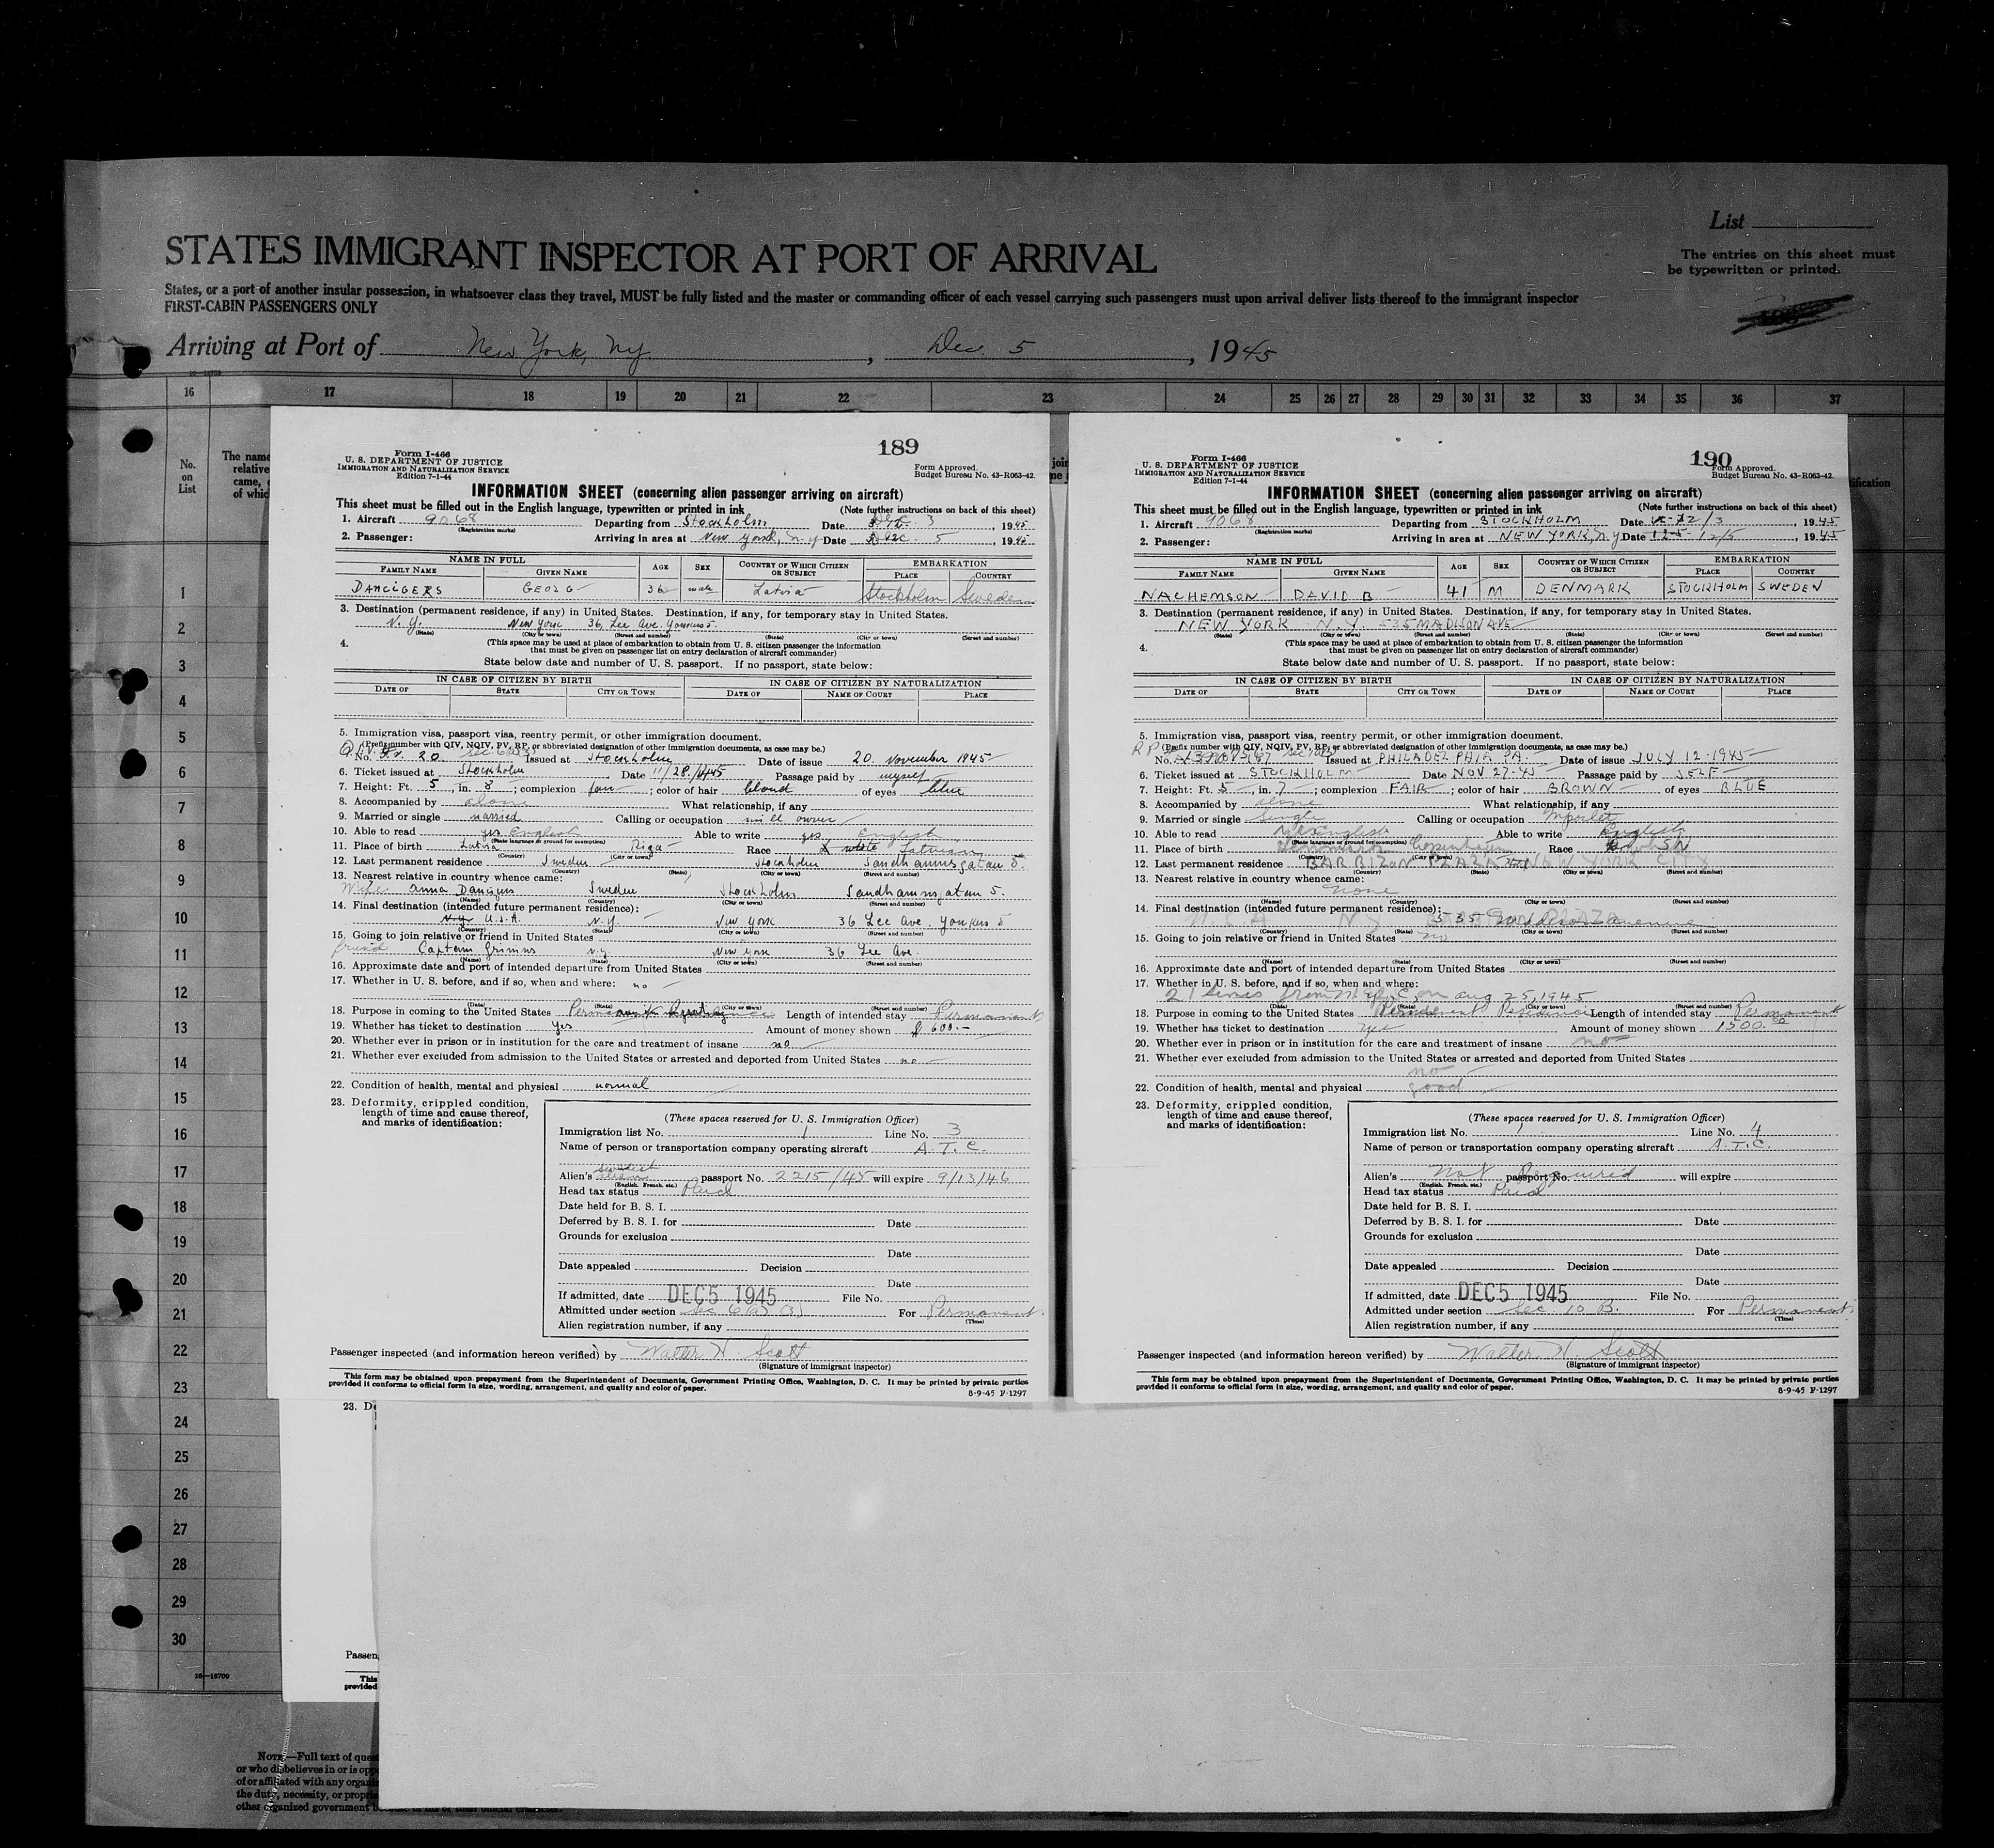 List
STATES IMMIGRANT INSPECTOR AT PORT OF ARRIVAL
The entries on this sheet must
be typewritten or printed.
States, or a port of another insular possession, in whatsoever class they travel, MUST be fully listed and the master or commanding officer of each vessel carrying such passengers must upon arrival deliver lists thereof to the immigrant inspector
FIRST-CABIN PASSENGERS ONLY
Arriving at Port of New York, NY, Dec. 5, 1945
16 17 18 19 20 21 22 23 24 25 26 27 28 29 30 31 32 33 34 35 36 37
No.
on
List
The name
relative
came,
of whic
1
2
3
4
5
6
7
8
9
10
11
12
13
14
15
16
17
18
19
20
21
22
23
24
25
26
27
28
29
30
16—18709
189
Form I-466
U. S. DEPARTMENT OF JUSTICE
IMMIGRATION AND NATURALIZATION SERVICE
Edition 7-1-44
Form Approved.
Budget Bureau No. 43-R063-42.
INFORMATION SHEET (concerning alien passenger arriving on aircraft)
This sheet must be filled out in the English language, typewritten or printed in ink (Note further instructions on back of this sheet)
1. Aircraft 9068 Departing from Stockholm Date Dec. 3, 1945
(Registration marks)
2. Passenger: Arriving in area at New York, N.Y. Date Dec. 5, 1945
NAME IN FULL AGE SEX COUNTRY OF WHICH CITIZEN OR SUBJECT EMBARKATION
FAMILY NAME GIVEN NAME PLACE COUNTRY
DANCIGERS GEORG 36 male Latvia Stockholm Sweden
3. Destination (permanent residence, if any) in United States. Destination, if any, for temporary stay in United States.
N.Y. New York 36, Lee Ave. Yonkers 5.
(State) (City or town) (Street and number) (State) (City or town) (Street and number)
4. (This space may be used at place of embarkation to obtain from U. S. citizen passenger the information
that must be given on passenger list on entry declaration of aircraft commander)
State below date and number of U. S. passport. If no passport, state below:
IN CASE OF CITIZEN BY BIRTH IN CASE OF CITIZEN BY NATURALIZATION
DATE OF STATE CITY OR TOWN DATE OF NAME OF COURT PLACE
5. Immigration visa, passport visa, reentry permit, or other immigration document.
(Prefix number with QIV, NQIV, PV, RP, or abbreviated designation of other immigration documents, as case may be.)
No. 20 Issued at Stockholm Date of issue 20. November 1945
6. Ticket issued at Stockholm Date 11/28/1945 Passage paid by myself
7. Height: Ft. 5, in. 8; complexion fair; color of hair blond of eyes blue
8. Accompanied by alone What relationship, if any
9. Married or single married Calling or occupation mill owner
10. Able to read yes English Able to write yes English
(State language or ground for exemption)
11. Place of birth Latvia Riga Race Latvian
(Country) (City or town)
12. Last permanent residence Sweden Stockholm Sandhamnsgatan 5.
(Country) (State) (City or town) (Street and number)
13. Nearest relative in country whence came:
Wife Anna Sweden Stockholm Sandhamnsgatan 5.
(Name) (Country) (City or town) (Street and number)
14. Final destination (intended future permanent residence):
U.S.A. N.Y. New York 36 Lee Ave. Yonkers 5
(Country) (State) (City or town) (Street and number)
15. Going to join relative or friend in United States
friend Captain Grimms N.Y. New York 36 Lee Ave.
(Name) (State) (City or town) (Street and number)
16. Approximate date and port of intended departure from United States
17. Whether in U. S. before, and if so, when and where: no
(Date) (State) (City or town) (Street and number)
18. Purpose in coming to the United States Length of intended stay Permanent
19. Whether has ticket to destination yes Amount of money shown $ 600.-
20. Whether ever in prison or in institution for the care and treatment of insane no
21. Whether ever excluded from admission to the United States or arrested and deported from United States no
22. Condition of health, mental and physical normal
23. Deformity, crippled condition,
length of time and cause thereof,
and marks of identification:
(These spaces reserved for U. S. Immigration Officer)
Immigration list No. 1 Line No. 3
Name of person or transportation company operating aircraft A.T.C.
Alien's Swedish passport No. 2215/45 will expire 9/13/46
(English, French, etc.)
Head tax status Paid
Date held for B. S. I.
Deferred by B. S. I. for Date
Grounds for exclusion
Date
Date appealed Decision
Date
If admitted, date DEC 5 1945 File No.
Admitted under section Sec 6(a)(3) For Permanent
(Time)
Alien registration number, if any
Passenger inspected (and information hereon verified) by Walter H. Scott
(Signature of immigrant inspector)
This form may be obtained upon prepayment from the Superintendent of Documents, Government Printing Office, Washington, D. C. It may be printed by private parties
provided it conforms to official form in size, wording, arrangement, and quality and color of paper.
8-9-45 F-1297
190
Form I-466
U. S. DEPARTMENT OF JUSTICE
IMMIGRATION AND NATURALIZATION SERVICE
Edition 7-1-44
Form Approved.
Budget Bureau No. 43-R063-42.
INFORMATION SHEET (concerning alien passenger arriving on aircraft)
This sheet must be filled out in the English language, typewritten or printed in ink (Note further instructions on back of this sheet)
1. Aircraft 9068 Departing from STOCKHOLM Date 12/3, 1945
(Registration marks)
2. Passenger: Arriving in area at NEW YORK, N.Y. Date 12/5, 1945
NAME IN FULL AGE SEX COUNTRY OF WHICH CITIZEN OR SUBJECT EMBARKATION
FAMILY NAME GIVEN NAME PLACE COUNTRY
NACHEMSON DAVID B 41 M DENMARK STOCKHOLM SWEDEN
3. Destination (permanent residence, if any) in United States. Destination, if any, for temporary stay in United States.
NEW YORK N.Y. 535 MADISON AVE
(State) (City or town) (Street and number) (State) (City or town) (Street and number)
4. (This space may be used at place of embarkation to obtain from U. S. citizen passenger the information
that must be given on passenger list on entry declaration of aircraft commander)
State below date and number of U. S. passport. If no passport, state below:
IN CASE OF CITIZEN BY BIRTH IN CASE OF CITIZEN BY NATURALIZATION
DATE OF STATE CITY OR TOWN DATE OF NAME OF COURT PLACE
5. Immigration visa, passport visa, reentry permit, or other immigration document.
(Prefix number with QIV, NQIV, PV, RP, or abbreviated designation of other immigration documents, as case may be.)
No. Issued at PHILADELPHIA PA. Date of issue JULY 12-1945
6. Ticket issued at STOCKHOLM Date NOV 27-45 Passage paid by SELF
7. Height: Ft. 5, in. 7; complexion FAIR; color of hair BROWN of eyes BLUE
8. Accompanied by alone What relationship, if any
9. Married or single Single Calling or occupation Importer
10. Able to read yes English Able to write English
(State language or ground for exemption)
11. Place of birth Denmark Copenhagen Race
(Country) (City or town)
12. Last permanent residence BARBIZON PLAZA NEW YORK CITY
(Country) (State) (City or town) (Street and number)
13. Nearest relative in country whence came:
none
(Name) (Country) (City or town) (Street and number)
14. Final destination (intended future permanent residence):
U.S.A. N.Y. 535 Madison Avenue
(Country) (State) (City or town) (Street and number)
15. Going to join relative or friend in United States no
(Name) (State) (City or town) (Street and number)
16. Approximate date and port of intended departure from United States
17. Whether in U. S. before, and if so, when and where:
21 times from N.Y.C. on Aug 25, 1945
(Date) (State) (City or town) (Street and number)
18. Purpose in coming to the United States Permanent Residence Length of intended stay Permanent
19. Whether has ticket to destination yes Amount of money shown 1500.00
20. Whether ever in prison or in institution for the care and treatment of insane no
21. Whether ever excluded from admission to the United States or arrested and deported from United States
no
22. Condition of health, mental and physical good
23. Deformity, crippled condition,
length of time and cause thereof,
and marks of identification:
(These spaces reserved for U. S. Immigration Officer)
Immigration list No. 1 Line No. 4
Name of person or transportation company operating aircraft A.T.C.
Alien's Not passport No. Required will expire
(English, French, etc.)
Head tax status Paid
Date held for B. S. I.
Deferred by B. S. I. for Date
Grounds for exclusion
Date
Date appealed Decision
Date
If admitted, date DEC 5 1945 File No.
Admitted under section Sec 10 B. For Permanent
(Time)
Alien registration number, if any
Passenger inspected (and information hereon verified) by Walter H. Scott
(Signature of immigrant inspector)
This form may be obtained upon prepayment from the Superintendent of Documents, Government Printing Office, Washington, D. C. It may be printed by private parties
provided it conforms to official form in size, wording, arrangement, and quality and color of paper.
8-9-45 F-1297
23. D
Passen
This
provided
NOTE.—Full text of ques
or who disbelieves in or is opp
of or affiliated with any organi
the duty, necessity, or propri
other organized government